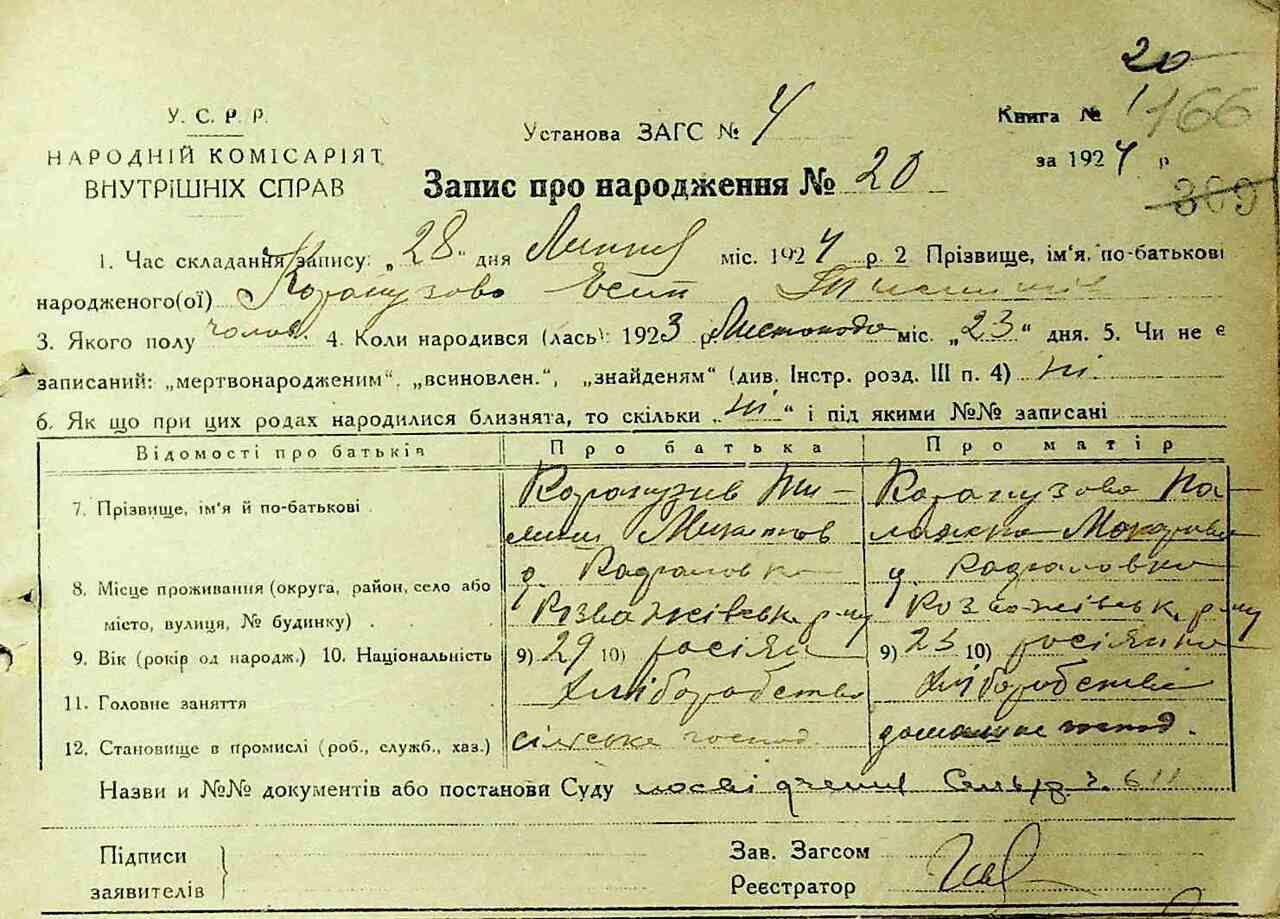 20
У. С. Р. Р.
Установа ЗАГС № 4
Книга № 1
166
НАРОДНІЙ КОМІСАРІЯТ
за 1924 р
ВНУТРІШНІХ СПРАВ
Запис про народження № 20
309
1. Час складання запису: „28" дня Липня міс. 1924 р. 2 Прізвище, ім'я, по-батькові
народженого(ої)
3. Якого полу чолов. 4. Коли народився (лась): 1923 р. Листопада міс. „23" дня. 5. Чи не є
записаний: „мертвонародженим", „всиновлен.", „знайденям" (див. Інстр. розд. III п. 4) ні.
6. Як що при цих родах народилися близнята, то скільки „ні" і під якими №№ записані
Відомості про батьків Про батька Про матір
7. Прізвище, ім'я й по-батькові
8. Місце проживання (округа, район, село або
місто, вулиця, № будинку)
Розважівськ. р-ну Розважівськ. р-ну
9. Вік (рокір од народж.) 10. Національність 9) 29 10) росіян 9) 23 10) росіянка
11. Головне заняття Хліборобство Хліборобство
12. Становище в промислі (роб., служб., хаз.) сільське господ. домашнє господ.
Назви и №№ документів або постанови Суду посвідчення
Підписи
заявителів
Зав. Загсом
Реєстратор